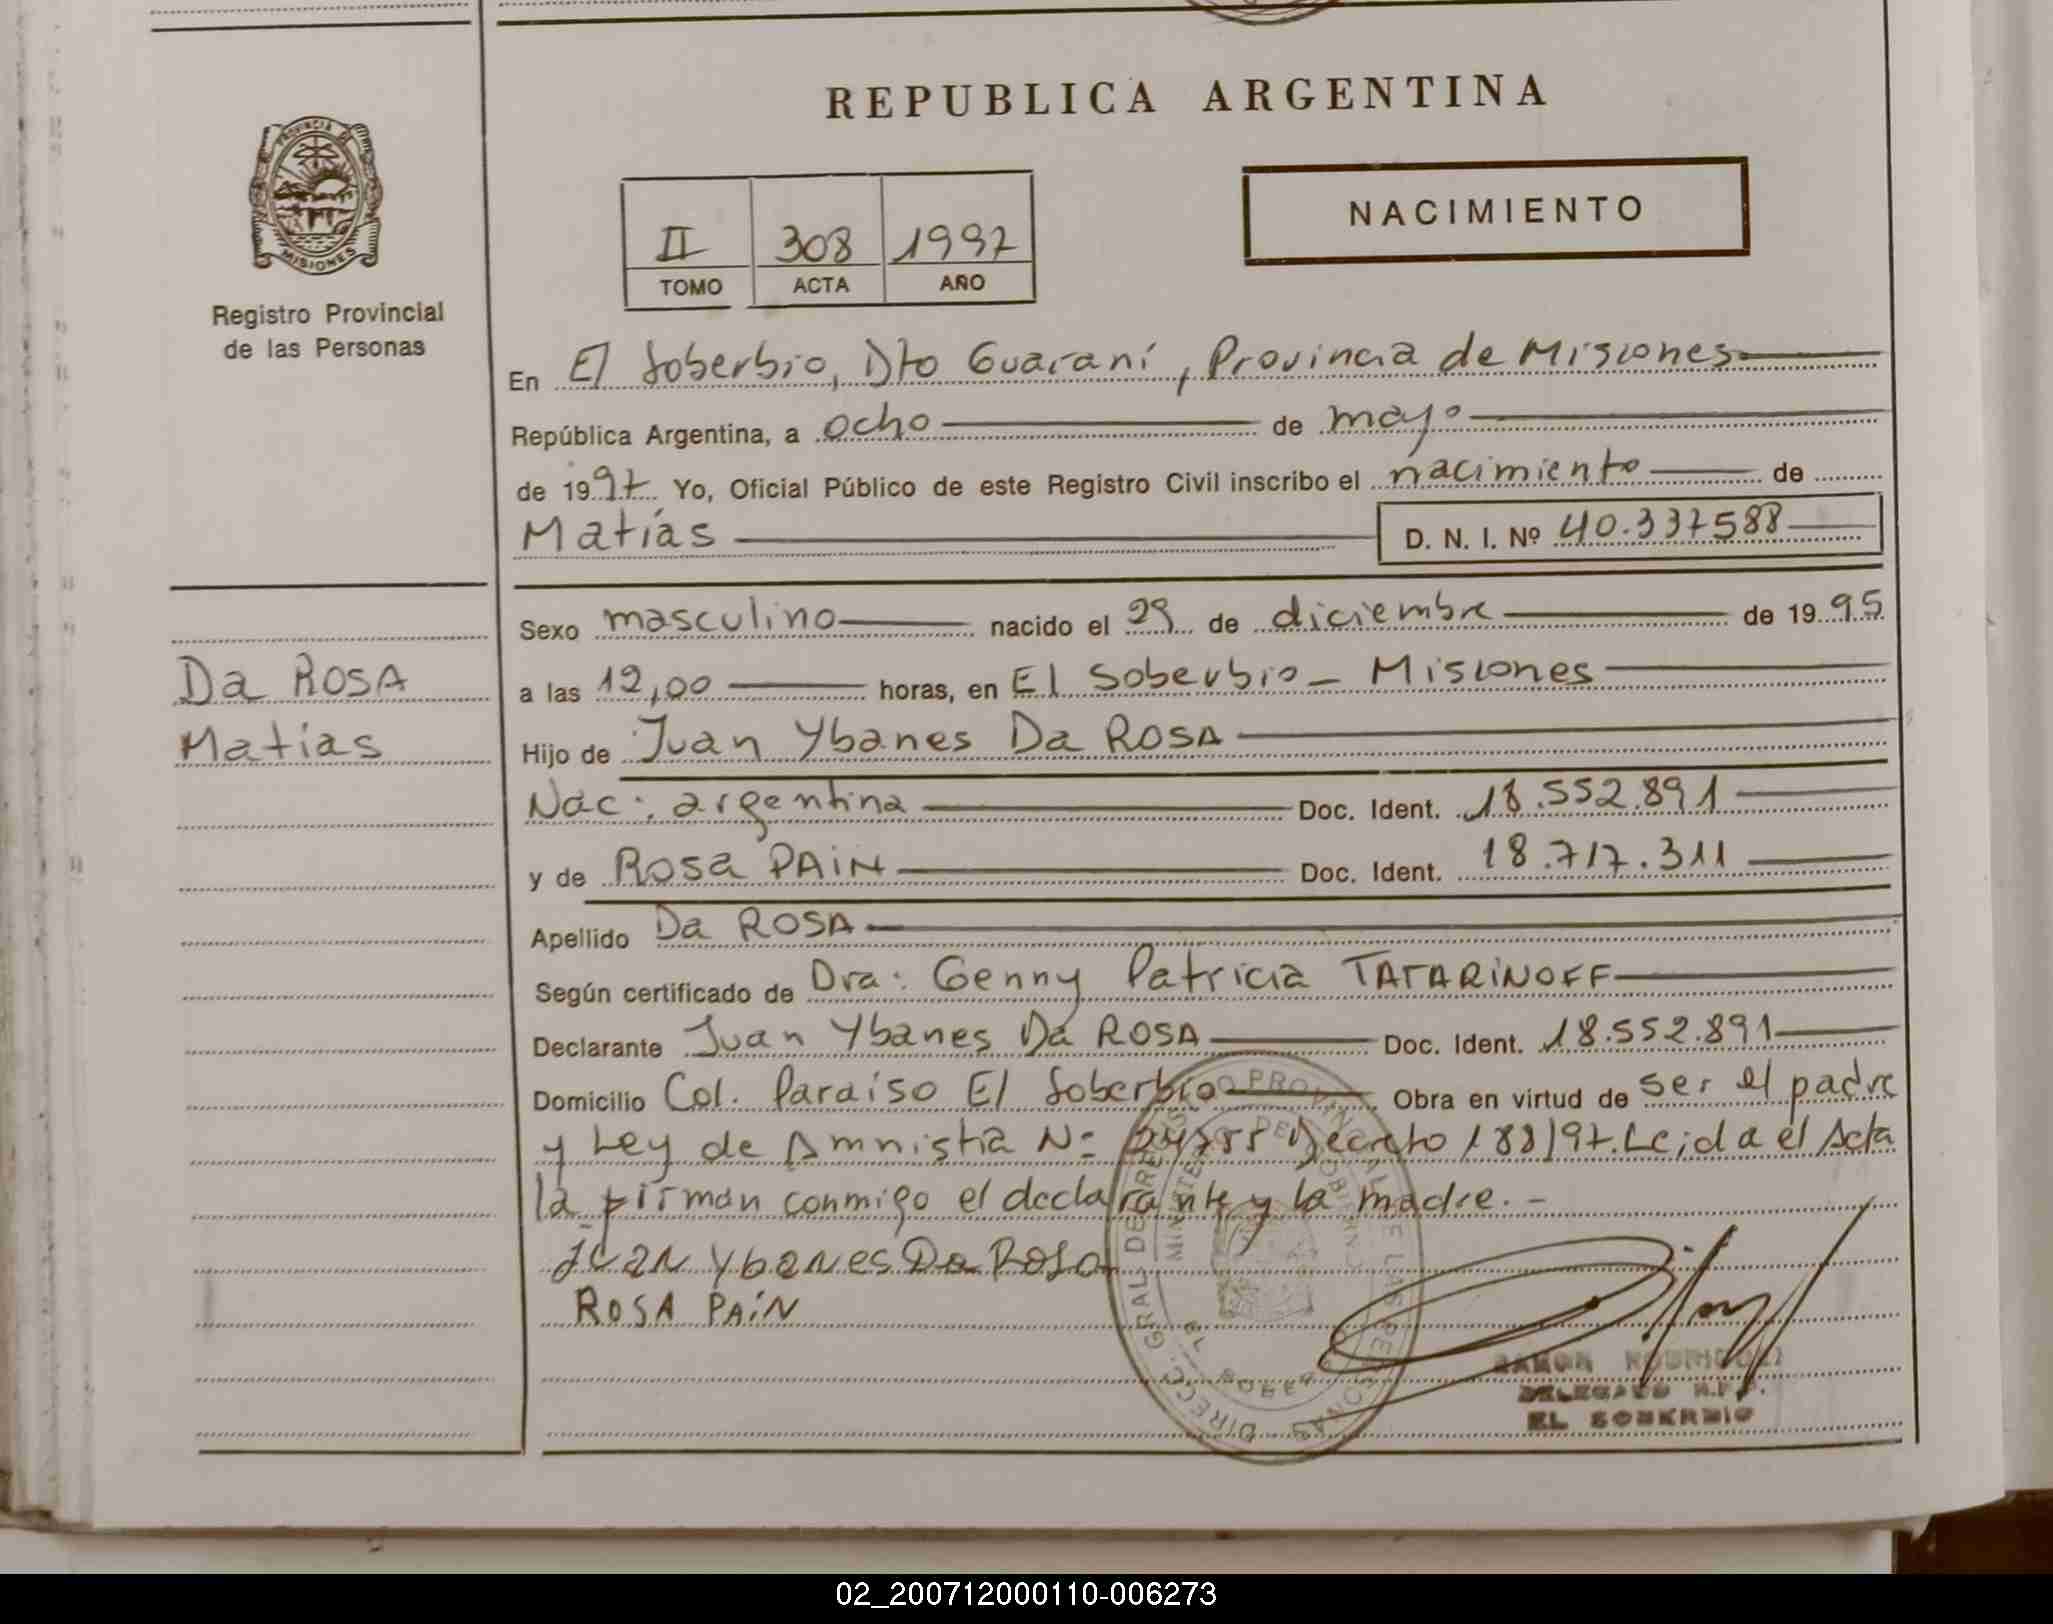 REPUBLICA ARGENTINA
PROVINCIA DE
MISIONES
Registro Provincial
de las Personas
II 308 1997
TOMO ACTA AÑO
NACIMIENTO
En El Soberbio, Dto Guaraní, Provincia de Misiones
República Argentina, a ocho de mayo
de 1997 Yo, Oficial Público de este Registro Civil inscribo el nacimiento de
Matías D. N. I. Nº 40.337588
Sexo masculino nacido el 29 de diciembre de 1995
Da ROSA
Matías
a las 12,00 horas, en El Soberbio - Misiones
Hijo de Juan Ybanes Da ROSA
Nac: argentina Doc. Ident. 18.552.891
y de Rosa PAiN Doc. Ident. 18.717.311
Apellido Da ROSA
Según certificado de Dra: Genny Patricia TATARiNOFF
Declarante Juan Ybanes Da ROSA Doc. Ident. 18.552.891
Domicilio Col. Paraíso El Soberbio Obra en virtud de ser el padre
y Ley de Amnistia Nº Decreto 188/97. Leida el Acta
la firman conmigo el declarante y la madre. -
JUAN YbaNes Da Rosa
ROSA PAiN
DIRECC. GRAL. DE REGISTRO PROVINCIAL DE LAS PERSONAS
MINISTERIO DE GOBIERNO
EL SOBERBIO
RAMON RODRIGUEZ
DELEGADO R.P.P.
EL SOBERBIO
02_200712000110-006273